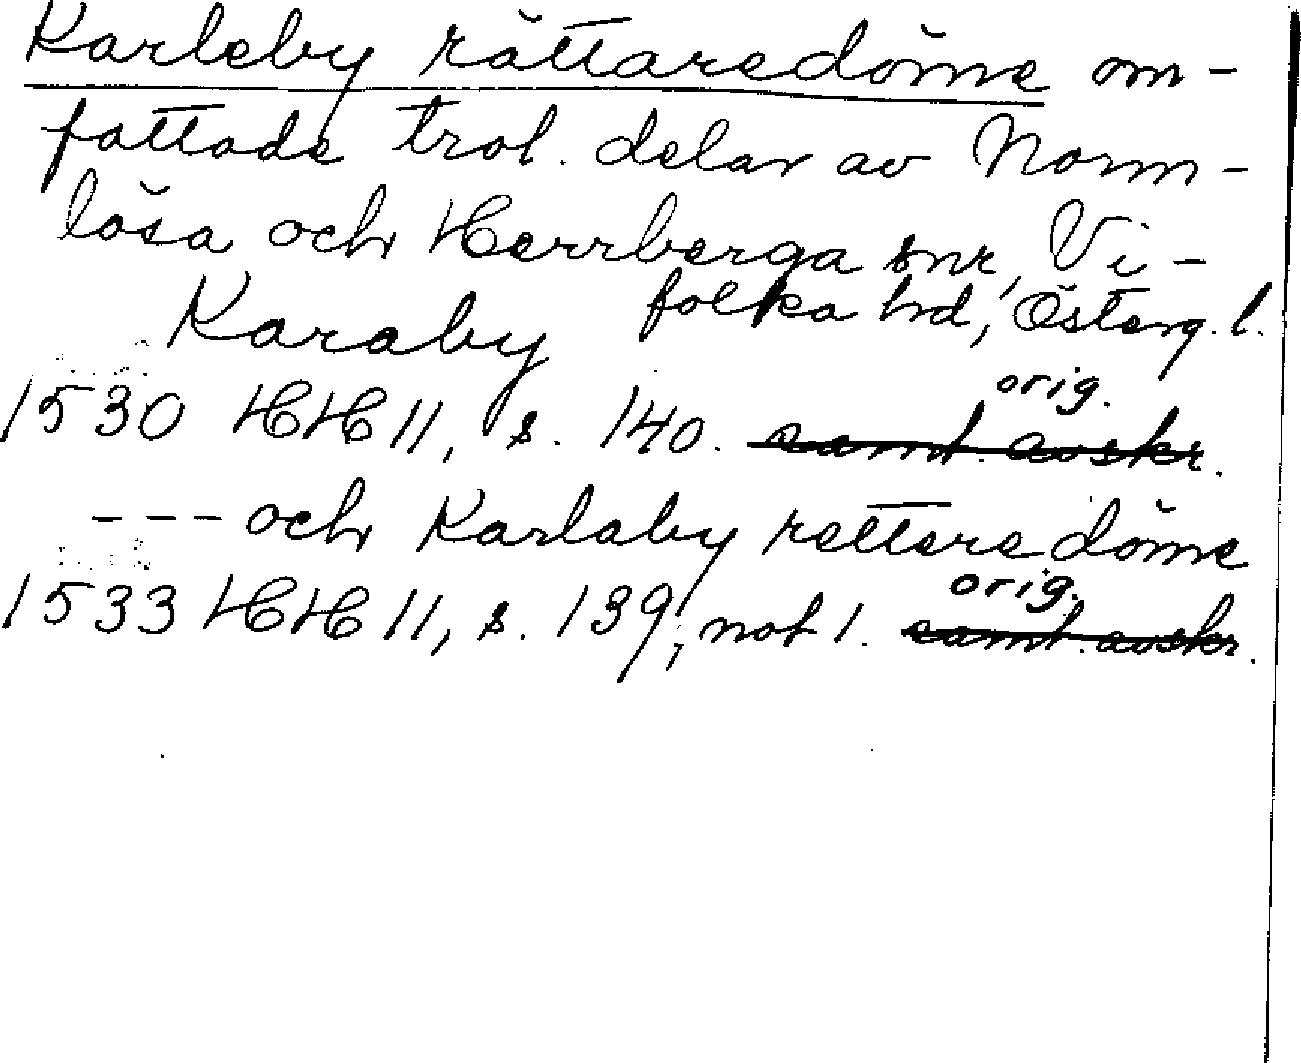 Karleby rättaredöme om-
fattade trol. delar av Norm-
lösa och Herrberga snr, Vi-
folka hd, Österg. l.
Karaby
1530 HH 11, s. 140. orig. samt. avskr.
--- och Karlaby rettere döme
1533 HH 11, s. 139, not 1. orig. samt. avskr.